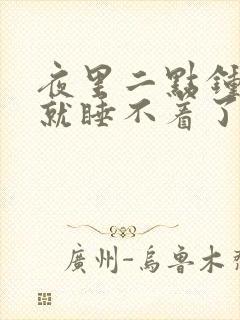 夜里二點鍾
就睡不着了
廣州-烏魯木齊